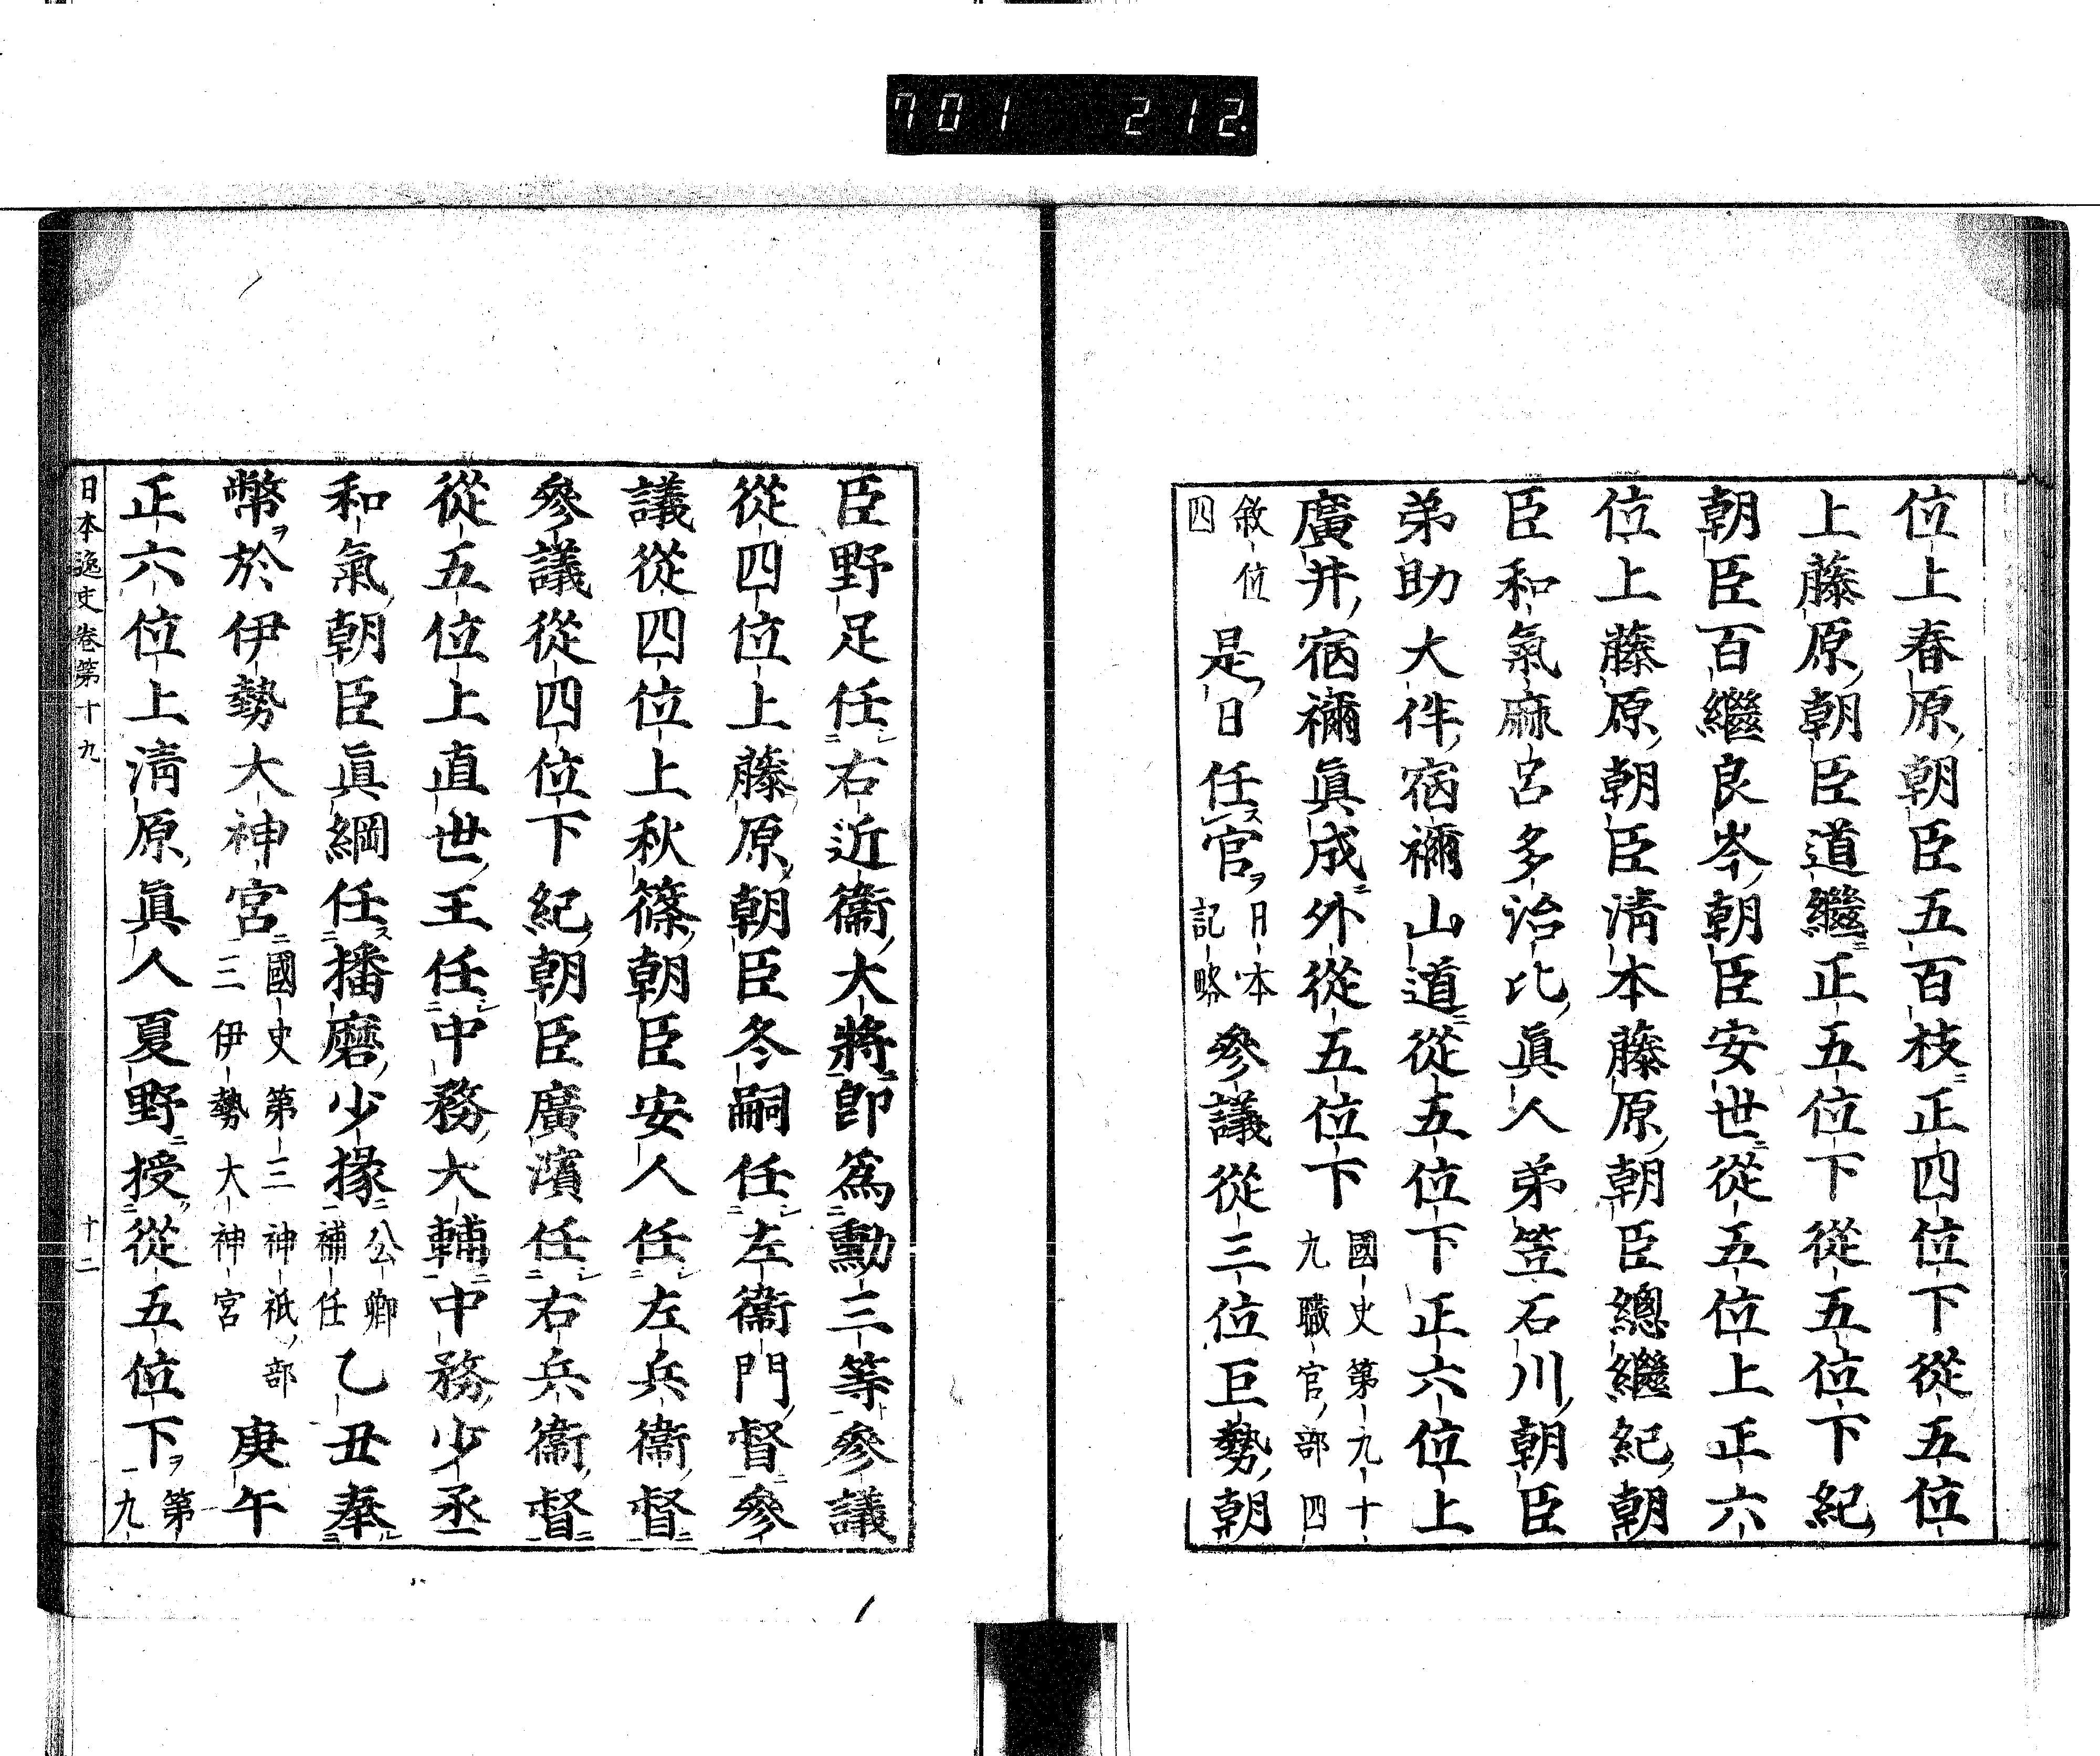 701 212.
位上春原朝臣五百枝正四位下從五位
上藤原朝臣道繼正五位下從五位下紀
朝臣百繼良岑朝臣安世從五位上正六
位上藤原朝臣清本藤原朝臣總繼紀朝
臣和氣麻呂多治比眞人弟笠石川朝臣
弟助大伴宿禰山道從五位下正六位上
廣井宿禰眞成外從五位下國史第九十
九職官部四
敘位
四
是日任官日本
記略
參議從三位巨勢朝
臣野足任右近衞大將卽爲勳三等參議
從四位上藤原朝臣冬嗣任左衞門督參
議從四位上秋篠朝臣安人任左兵衞督
參議從四位下紀朝臣廣濱任右兵衞督
從五位上直世王任中務大輔中務少丞
和氣朝臣眞綱任播磨少掾公卿
補任
乙丑奉
幣於伊勢大神宮國史第三神祇部
三伊勢大神宮
庚午
正六位上清原眞人夏野授從五位下第
九
日本逸史卷第十九
十二